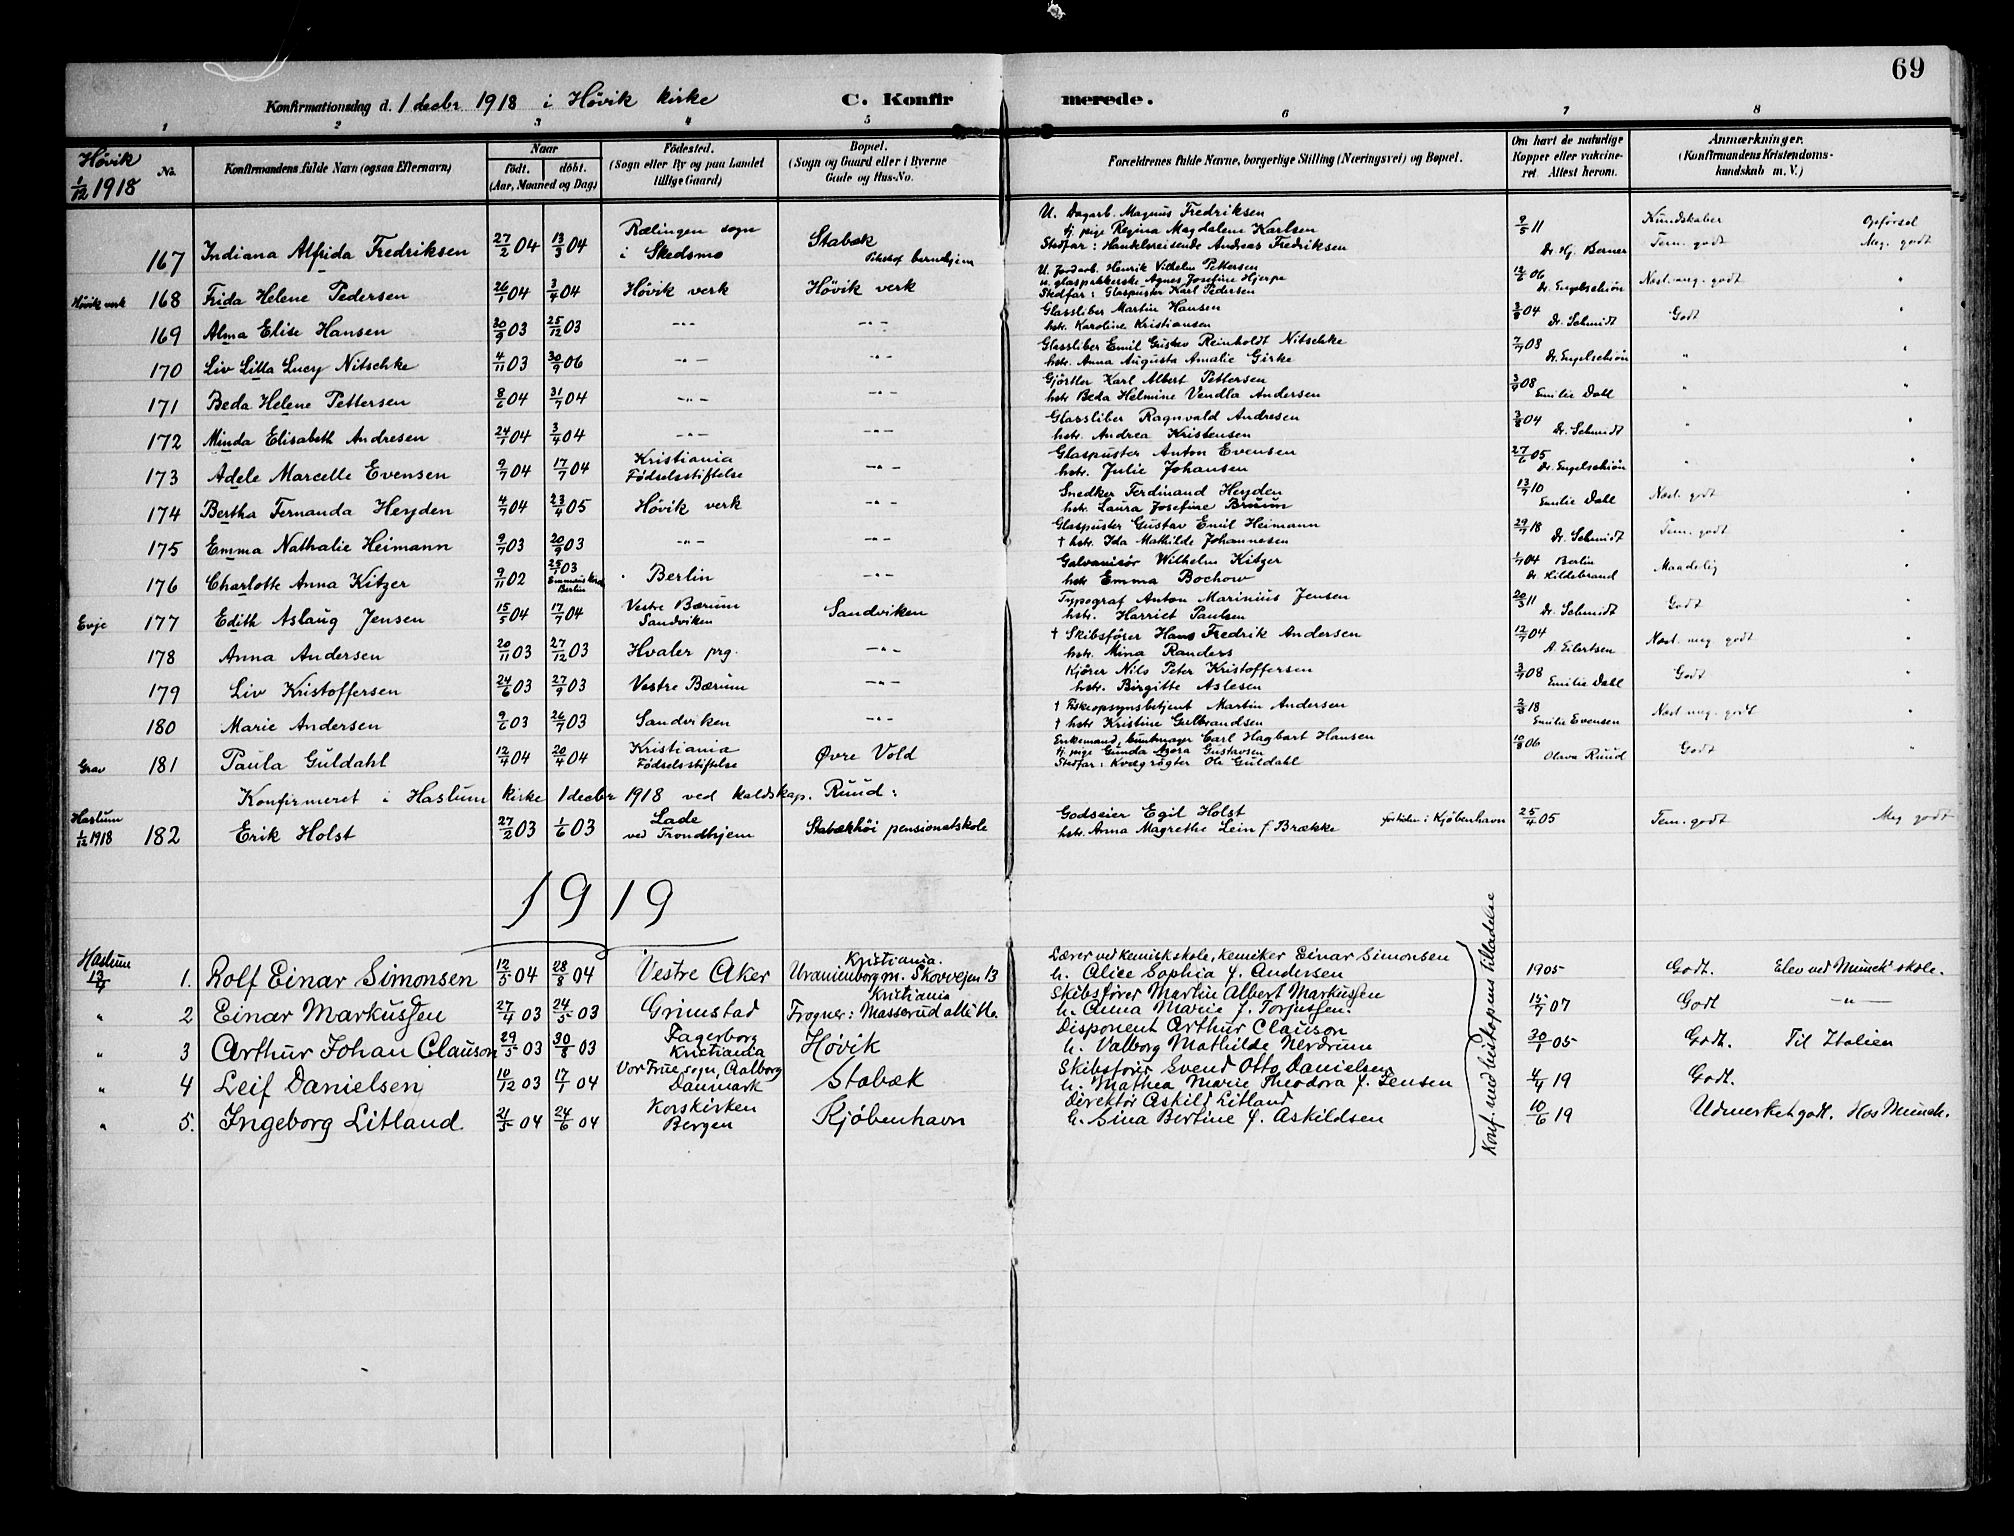 69
Konfirmationsdag d. 1 decbr 1918 i Høvik kirke C. Konfirmerede.
1 2 3 4 5 6 7 8
Høvik 1/12 1918
No. Konfirmandens fulde Navn (ogsaa Efternavn) Naar født. døbt. (Aar, Maaned og Dag) Fødested. (Sogn eller By og paa Landet tillige Gaard) Bopæl. (Sogn og Gaard eller i Byerne Gade og Hus-No. Forældrenes fulde Navne, borgerlige Stilling (Næringsvei) og Bopæl. Om havt de naturlige Kopper eller vakcineret. Attest herom. Anmærkninger. (Konfirmandens Kristendomskundskab m. V.)
Kundskaber Opførsel
167 Indiana Alfrida Fredriksen 27/2 04 13/3 04 Rælingen sogn i Skedsmo Stabæk barnehjem U. Dagarb. Magnus Fredriksen
tj. pige Regina Magdalene Karlsen
Stedfar: Handelsreisende Andreas Fredriksen 9/5 11 Dr. Hj. Berner Tem. godt Meg. godt
Høvik verk 168 Frida Helene Pedersen 26/1 04 3/4 04 Høvik verk Høvik verk U. Jordarb. Henrik Vilhelm Pettersen
u. glaspakkerske Agnes Josefine Hjerpe
Stedfar: Glaspuster Karl Pedersen 12/2 06 Dr. Engelschiøn Næst. meg. godt "
169 Alma Elise Hansen 30/9 03 25/12 03 -"- -"- Glassliber Martin Hansen
hstr. Karoline Kristiansen 3/8 04 Dr. Schmidt Godt "
170 Liv Lilla Lucy Nitschke 4/11 03 30/9 06 -"- -"- Glassliber Emil Gustav Reinholdt Nitschke
hstr. Anna Augusta Amalie Girke 7/7 08 Dr. Engelschiøn " "
171 Beda Helene Pettersen 8/6 04 31/7 04 -"- -"- Gjørtler Karl Albert Pettersen
hstr Beda Helmine Vendla Andersen 3/9 08 Emilie Dahl " "
172 Minda Elisabeth Andresen 24/1 04 3/4 04 -"- -"- Glassliber Ragnvald Andresen
hstr. Andrea Kristensen 3/8 04 Dr. Schmidt " "
173 Adele Marcelle Evensen 9/7 04 17/7 04 Kristiania Fødselsstiftelse -"- Glaspuster Anton Evensen
hstr. Julie Johansen 27/6 05 Dr. Engelschiøn " "
174 Bertha Fernanda Heyden 4/7 04 23/4 05 Høvik verk -"- Snedker Ferdinand Heyden
hstr. Laura Josefine Bruum 13/7 10 Emilie Dahl Næst. godt "
175 Emma Nathalie Heimann 9/7 03 20/9 03 -"- -"- Glaspuster Gustav Emil Heimann
† hstr. Ida Mathilde Johannesen 29/7 18 Dr. Schmidt Tem. godt "
176 Charlotte Anna Kitzer 9/11 02 25/1 03 Emmaus Kirche Berlin Berlin -"- Galvanisør Wilhelm Kitzer
hstr Emma Bochow 04 Berlin Dr. Hildebrand Maadelig "
Evje 177 Edith Aslaug Jensen 15/5 04 17/7 04 Vestre Bærum Sandviken Sandviken Typograf Anton Marinius Jensen
hstr. Harriet Paulsen 20/3 11 Dr. Schmidt Godt "
178 Anna Andersen 20/11 03 27/12 03 Hvaler prg. -"- † Skibsfører Hans Fredrik Andersen
hstr. Mina Randers 12/7 04 A. Eilertsen Næst. meg. godt "
179 Liv Kristoffersen 24/6 03 27/9 03 Vestre Bærum -"- Kjører Nils Peter Kristoffersen
hstr. Birgitte Aslesen 3/9 08 Emilie Dahl Godt "
180 Marie Andersen 9/6 03 26/7 03 Sandviken -"- † Fiskeopsynsbetjent Martin Andersen
† hstr Kristine Gulbrandsen 2/8 18 Emilie Evensen Næst meg. godt "
Grav 181 Paula Guldahl 12/4 04 20/4 04 Kristiania Fødselsstiftelse Øvre Vold Enkemand, buntmager Carl Hagbart Hansen
tj. pige Gunda Azora Gustavsen
Stedfar: Kvægrøgter Ole Guldahl 10/8 06 Olava Ruud Godt "
Konfirmeret i Haslum kirke 1 decbr 1918 ved kaldskap. Ruud:
Haslum 1/12 1918 182 Erik Holst 27/2 03 1/6 03 Lade ved Trondhjem Stabækhøi pensionatskole Godseier Egil Holst
hstr. Anna Magrethe Lein f Brække fortiden i Kjøbenhavn 25/4 05 Tem. godt Meg godt
1919
Haslum 13/4 1. Rolf Einar Simonsen 12/5 04 28/8 04 Vestre Aker Kristiania. Uranienborg m. Skovvejen 13 Lærer ved kemisk skole, kemiker Einar Simonsen
h. Alice Sophia f. Andersen 1905 Godt. Elev ved Munck' skole.
" 2 Einar Markussen 27/4 03 24/5 03 Grimstad Kristiania Frogner: Masserud allé 11c. Skibsfører Martin Albert Markussen
h. Anna Marie f. Torjussen. 15/7 07 Godt -"-
" 3 Arthur Johan Clauson 29/5 03 30/8 03 Fagerborg Kristiania Høvik Disponent Arthur Clauson
h. Valborg Mathilde Nerdrum 30/1 05 Godt. Til Italien
" 4 Leif Danielsen 10/12 03 17/1 04 Vor Frue sogn, Aalborg Danmark Stabæk Skibsfører Svend Otto Danielsen
h. Mathea Marie Theodora f. Jensen 4/4 19 Godt.
" 5. Ingeborg Litland 21/5 04 24/6 04 Korskirken Bergen Kjøbenhavn Direktør Askild Litland
h. Sina Bertine f. Askildsen 10/6 19 Udmerket godt. Hos Munch.
Konf. med biskopens tilladelse